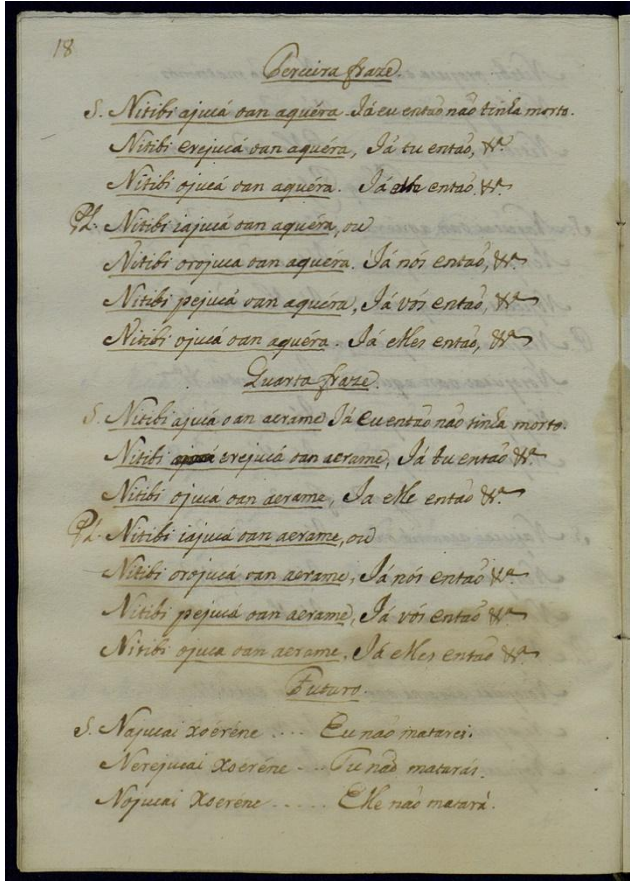 18
Terceira fraze.
S. Nitibi ajucá oan aquéra. Já eu então não tinha morto.
Nitibi erejucá oan aquéra, Já tu então, &ª
Nitibi ojucá oan aquéra. Já elle então. &ª
Pl. Nitibi iajucá oan aquéra, ou
Nitibi orojuca oan aquéra. Já nós então, &ª
Nitibi pejucá oan aquéra, Já vós então, &ª
Nitibi ojucá oan aquéra. Já elles então, &ª
Quarta fraze.
S. Nitibi ajucá oan aerame Já eu então não tinha morto.
Nitibi erejucá oan aerame, Já tu então &ª
Nitibi ojucá oan aerame, Ja elle então &ª
Pl. Nitibi iajucá oan aerame, ou
Nitibi orojucá oan aerame, Já nós então &ª
Nitibi pejucá oan aerame, Já vós então &ª
Nitibi ojuca oan aerame, Já elles então &ª
Futuro.
S. Najucai xoeréne .... Eu não matarei.
Nerejucai xoeréne ... Tu não matarás.
Nojucai xoeréne ..... Elle não matará.